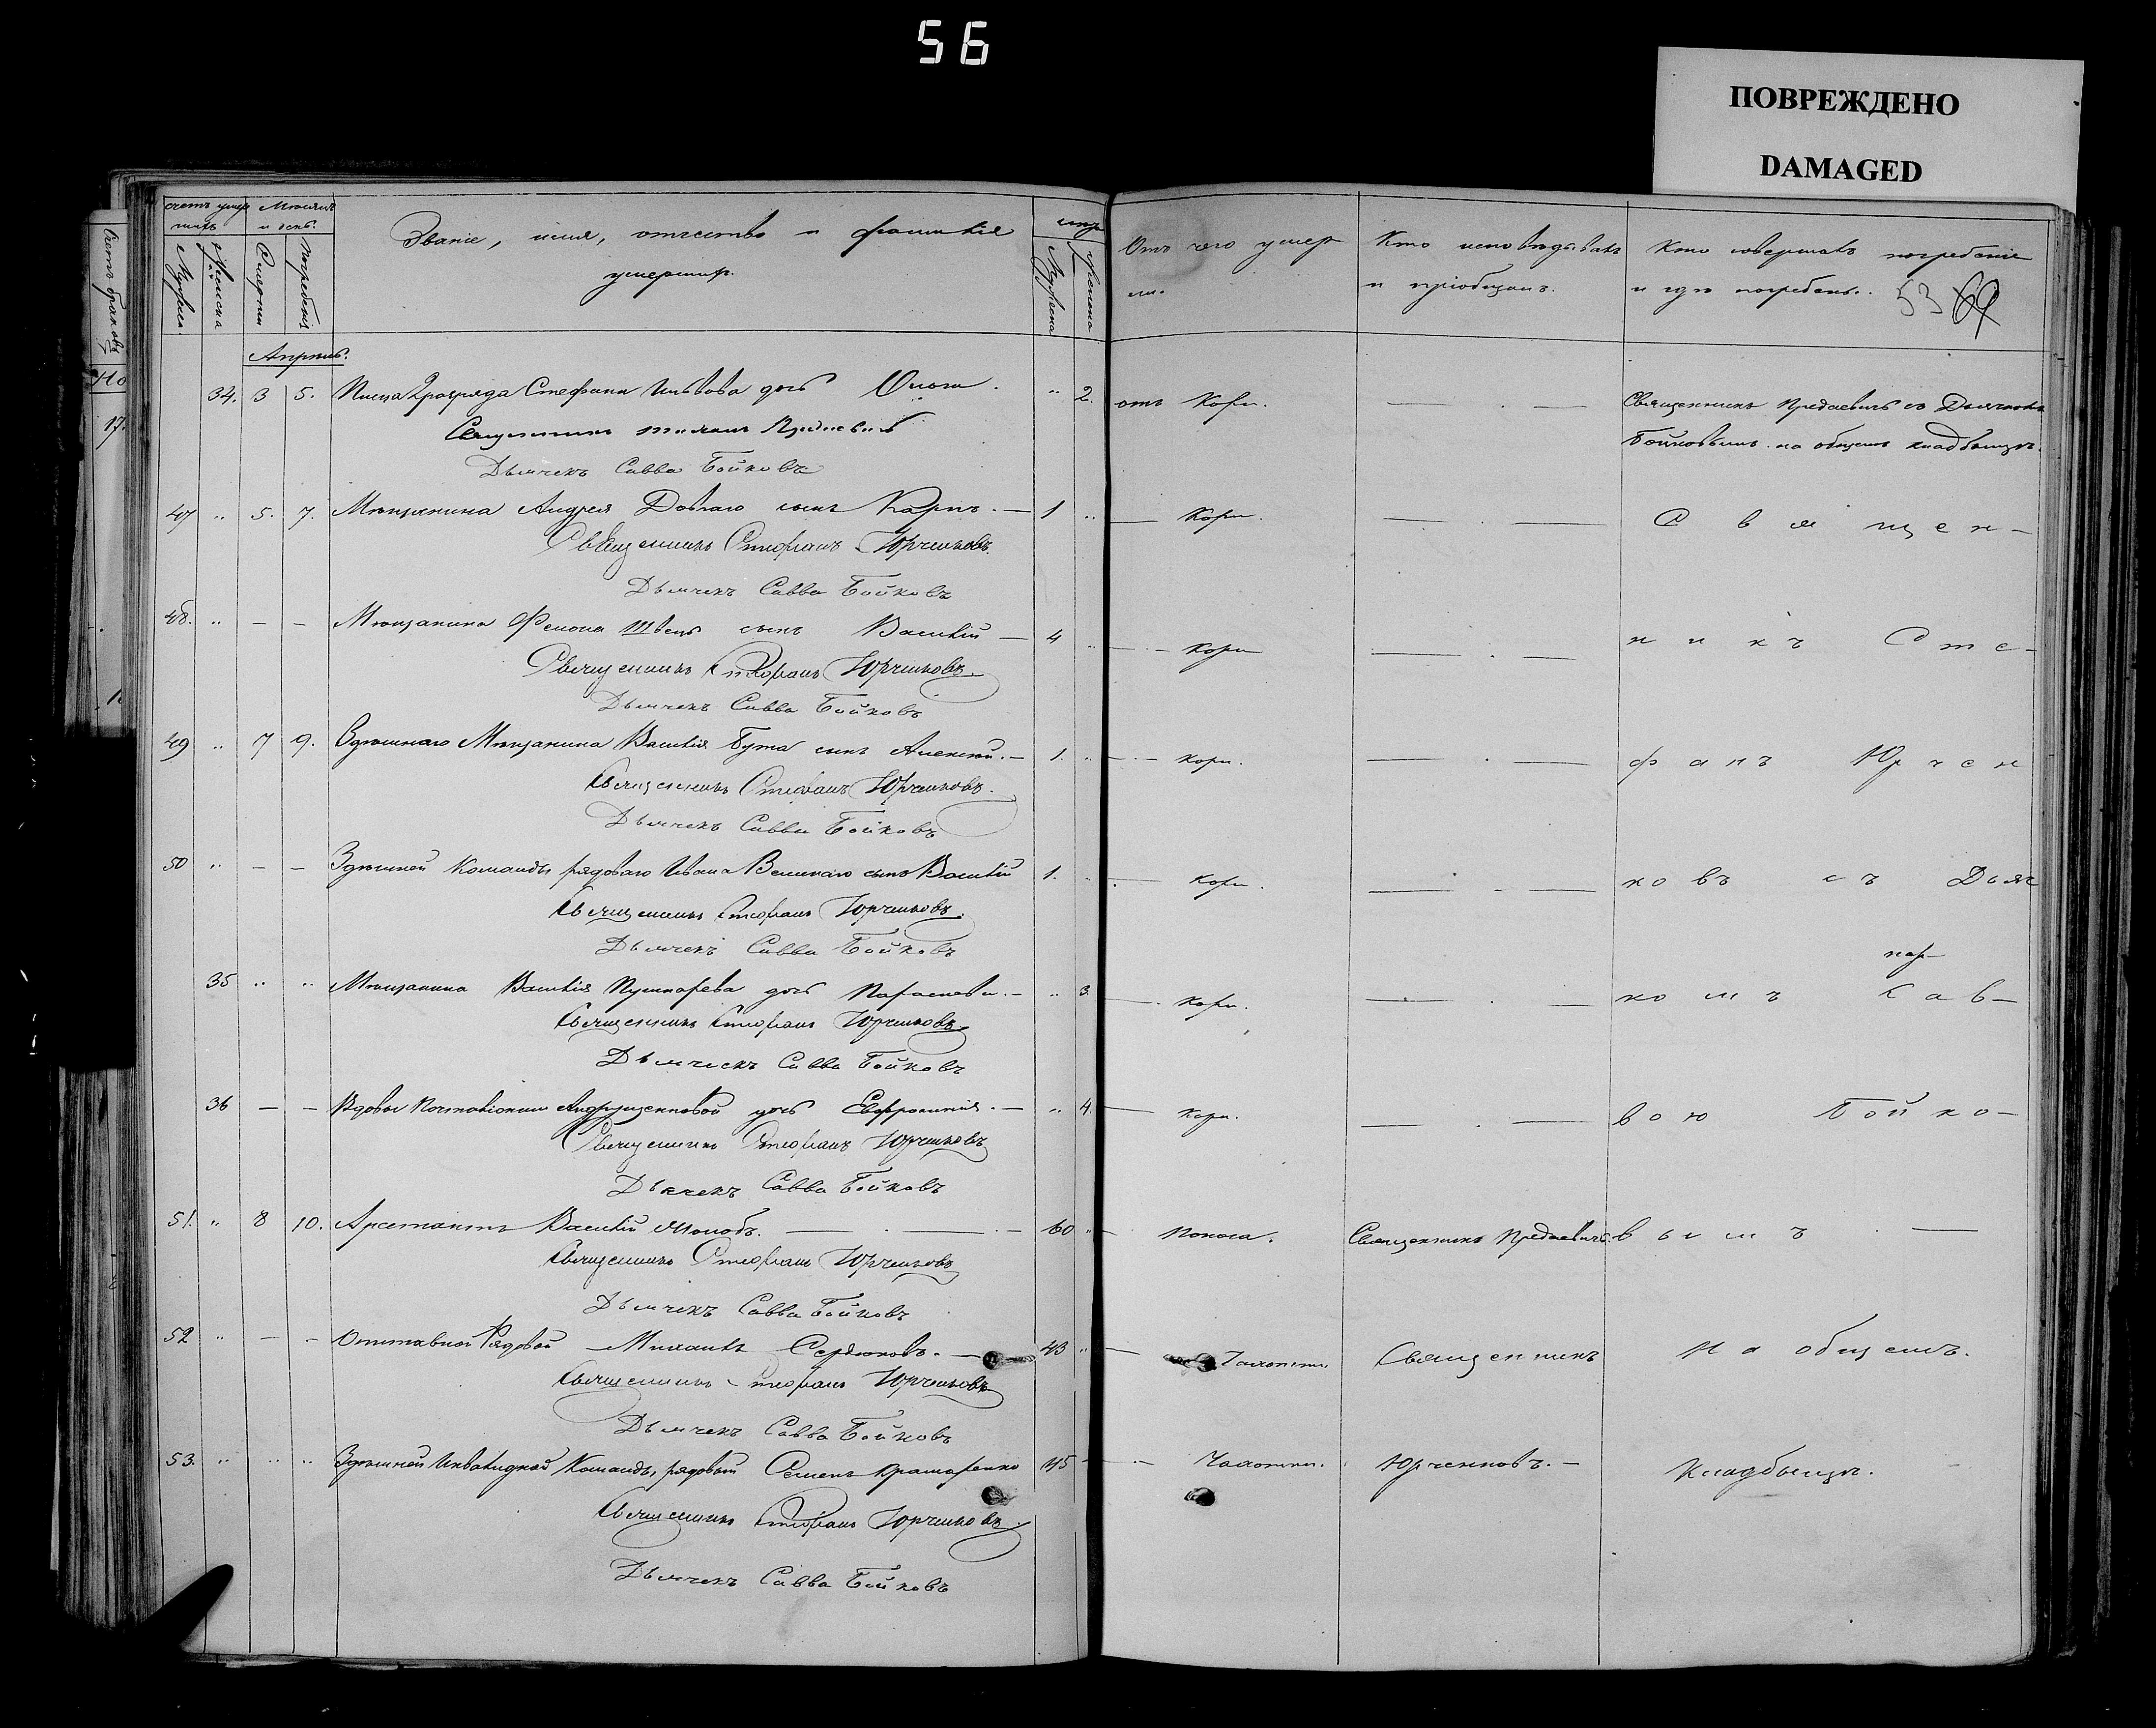 56
ПОВРЕЖДЕНО
DAMAGED
счетъ умер шихъ
Мѣсяцъ и день.
Званіе, имя, отчество и фамилія
умершихъ.
Отъ чего умер
ли.
Кто исповѣдывалъ
и пріобщалъ.
Кто совершалъ погребеніе
и гдѣ погребены.
53
Апрѣль.
34. 3 5. Писца 2 разряда Стефана Львова дочь Ольга. " 2. отъ Кори. Священникъ Предаевичъ съ Дьячкомъ
Священникъ Предаевичъ Бойковымъ на общемъ кладбищѣ.
Дьячекъ Савва Бойковъ
47 " 5. 7. Мѣщанина Андрея Довгаго сынъ Карпъ. — 1 " — Кори. С в я щ е н —
Священникъ Стефанъ Юрченковъ
Дьячекъ Савва Бойковъ
48. " — — Мѣщанина Филона Швеця сынъ Василій — 4 " — Кори н и к ъ С т е —
Священникъ Стефанъ Юрченковъ
Дьячекъ Савва Бойковъ
49 " 7 9. Здѣшняго Мѣщанина Василія Бута сынъ Алексѣй. — 1. " — Кори. ф а н ъ Ю р ч е н
Священникъ Стефанъ Юрченковъ
Дьячекъ Савва Бойковъ
50 " — — Здѣшней Команды рядоваго Ивана Великаго сынъ Василій 1. " — Кори. к о в ъ с ъ Д ь я ч
Священникъ Стефанъ Юрченковъ
Дьячекъ Савва Бойковъ
35 " " Мѣщанина Василія Пушкарева дочь Параскева. — " 3. — Кори. к о м ъ С а в —
Священникъ Стефанъ Юрченковъ
Дьячекъ Савва Бойковъ
36 — — Вдовы Почталіонши Андрущенковой дочь Евфросинія. — " 4. — Кори. в о ю Б о й к о —
Священникъ Стефанъ Юрченковъ
Дьячекъ Савва Бойковъ
51. " 8 10. Арестантъ Василій — 60 " — Поноса. Священникъ Предаевичъ. в ы м ъ —
Священникъ Стефанъ Юрченковъ
Дьячекъ Савва Бойковъ
52 " — — Отставной Рядовой Михаилъ Сердюковъ. — 43 " — Чахотки. Священникъ На общемъ.
Священникъ Стефанъ Юрченковъ
Дьячекъ Савва Бойковъ
53. " " " Здѣшней Инвалидной Команды, рядовый Семенъ Крамаренко 45 — Чахотки. Юрченковъ. — Кладбищѣ.
Священникъ Стефанъ Юрченковъ
Дьячекъ Савва Бойковъ